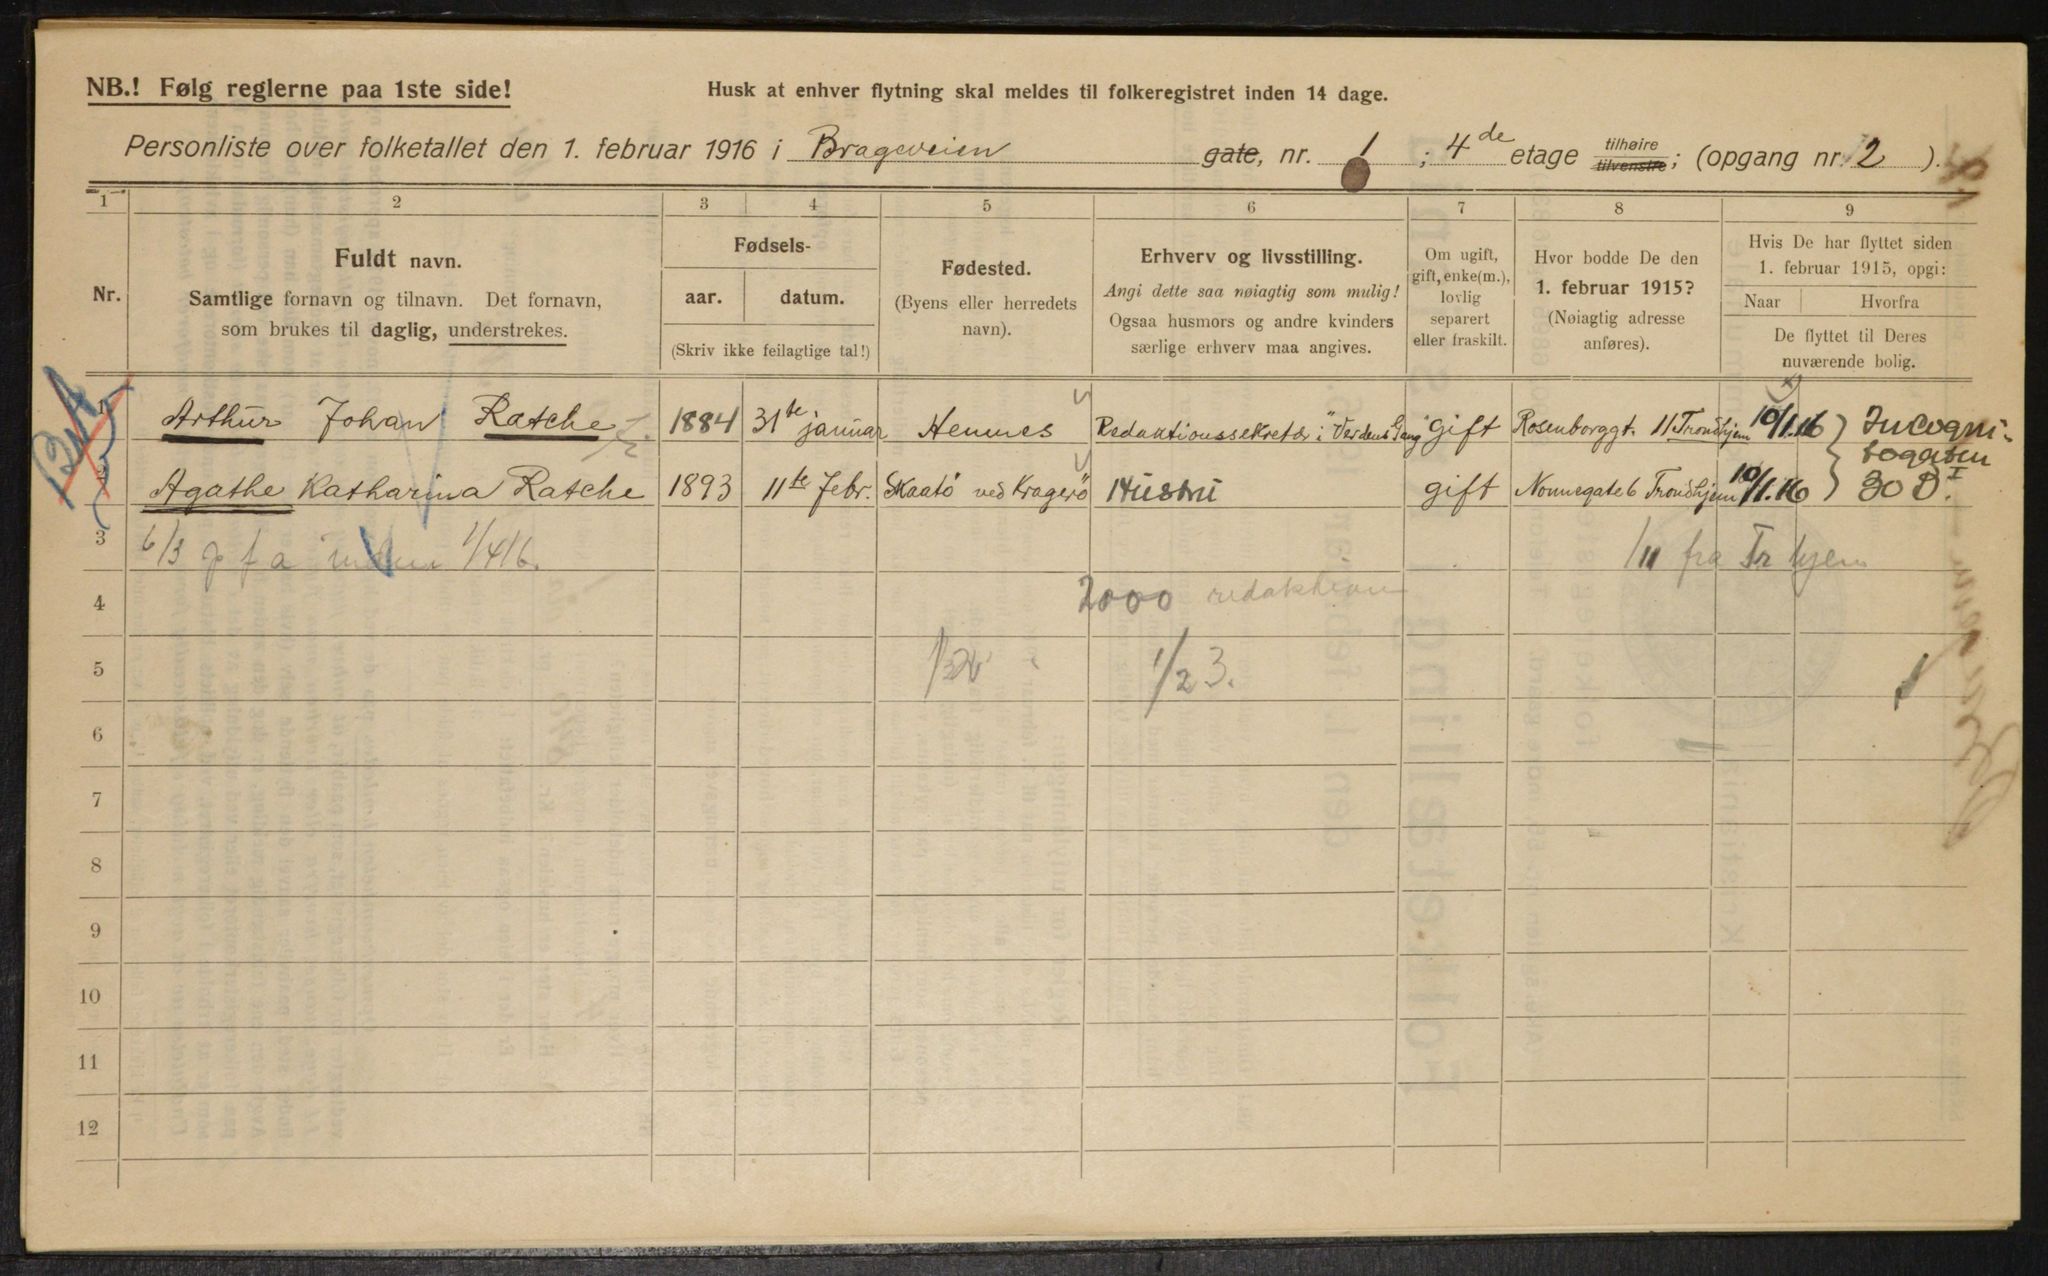 NB.! Følg reglerne paa 1ste side!
Husk at enhver flytning skal meldes til folkeregistret inden 14 dage.
Personliste over folketallet den 1. februar 1916 i Brageveien gate, nr. 1 ; 4de etage tilhøire tilvenstre; (opgang nr. 2 ).
1 2 3 4 5 6 7 8 9
Nr.
Fuldt navn.
Samtlige fornavn og tilnavn. Det fornavn,
som brukes til daglig, understrekes.
Fødsels-
aar. datum.
(Skriv ikke feilagtige tal!)
Fødested.
(Byens eller herredets
navn).
Erhverv og livsstilling.
Angi dette saa nøiagtig som mulig!
Ogsaa husmors og andre kvinders
særlige erhverv maa angives.
Om ugift,
gift, enke(m.),
lovlig
separert
eller fraskilt.
Hvor bodde De den
1. februar 1915?
(Nøiagtig adresse
anføres).
Hvis De har flyttet siden
1. februar 1915, opgi:
Naar Hvorfra
De flyttet til Deres
nuværende bolig.
1 Arthur Johan Ratche 1884 31te januar Hemnes Redaktionssekretær i "Verdens Gang" gift Rosenborggt. 11 Trondhjem 10/1.16 Incogni-
togaten
2 Agathe Katharina Ratche 1893 11te febr. Skaatö ved Kragerö Hustru gift Nonnegate 6 Trondhjem 10/1.16 30 B. I
3 6/3 1/416. 1/11 fra Tr hjem
4 2000 redaktion
5 1/23.
6
7
8
9
10
11
12